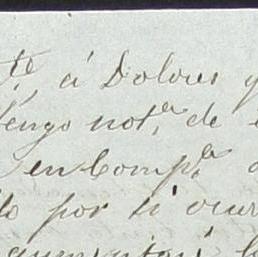 te, á Dolores y
Tengo notª. de
en Compª.
lo por si ocur
aumentará